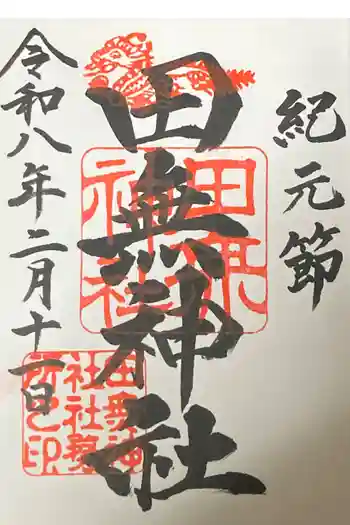 紀元節
田無神社
令和八年二月十一日
田無神社
田無神社社務所之印